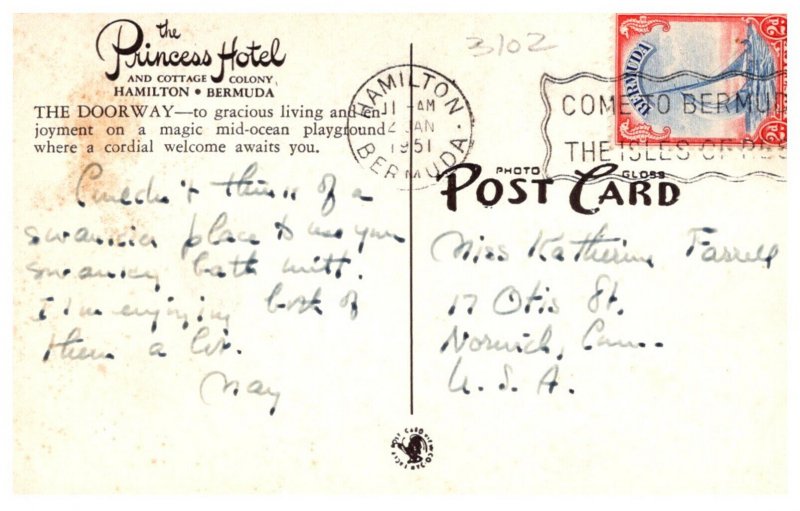 the
Princess Hotel
AND COTTAGE COLONY
HAMILTON • BERMUDA
THE DOORWAY—to gracious living and en-
joyment on a magic mid-ocean playground
where a cordial welcome awaits you.
Couldn't think of a
swankier place to use your
swankey bath mitt.
I'm enjoying both of
them a lot.
May
3102
HAMILTON
11-AM
2 JAN
1951
BERMUDA
BERMUDA
2d
2d
COME TO BERMUDA
THE ISLES OF
PHOTO GLOSS
POST CARD
Miss Katherine Farrell
17 Otis St.
Norwich, Conn.
U.S.A.